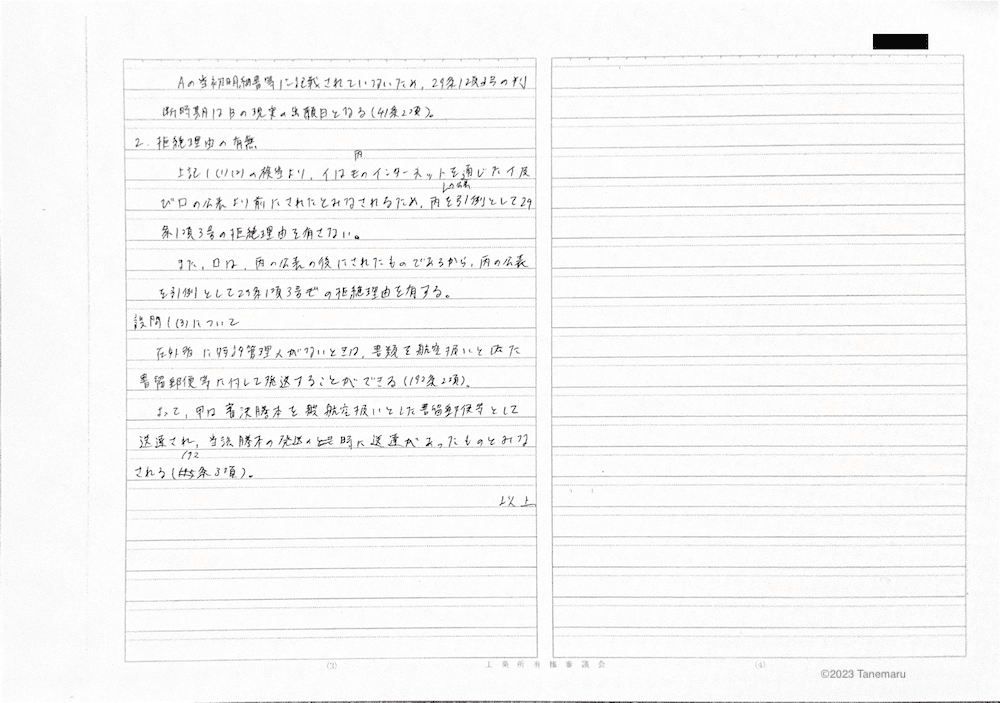 Aの当初明細書等に記載されていないため、29条1項3号の判
断時期はBの現実の出願日となる(41条2項)。
2. 拒絶理由の有無
上記1(1)(2)の検討より、イは丙のインターネットを通じたイ及
び口の公表より前にされたとみなされるため、丙の公表を引例として29
条1項3号の拒絶理由を有さない。
また、口は、丙の公表の後にされたものであるから、丙の公表
を引例として29条1項3号の拒絶理由を有する。
設問1(3)について
在外者に特許管理人がないときは、書類を航空扱いとした
書留郵便等に付して発送することができる(192条2項)。
よって、甲は審決謄本を航空扱いとした書留郵便等として
送達され、当該謄本の発送の時に送達があったものとみな
される(192条3項)。
以上
(3)
工業所有権審議会
(4)
©2023 Tanemaru